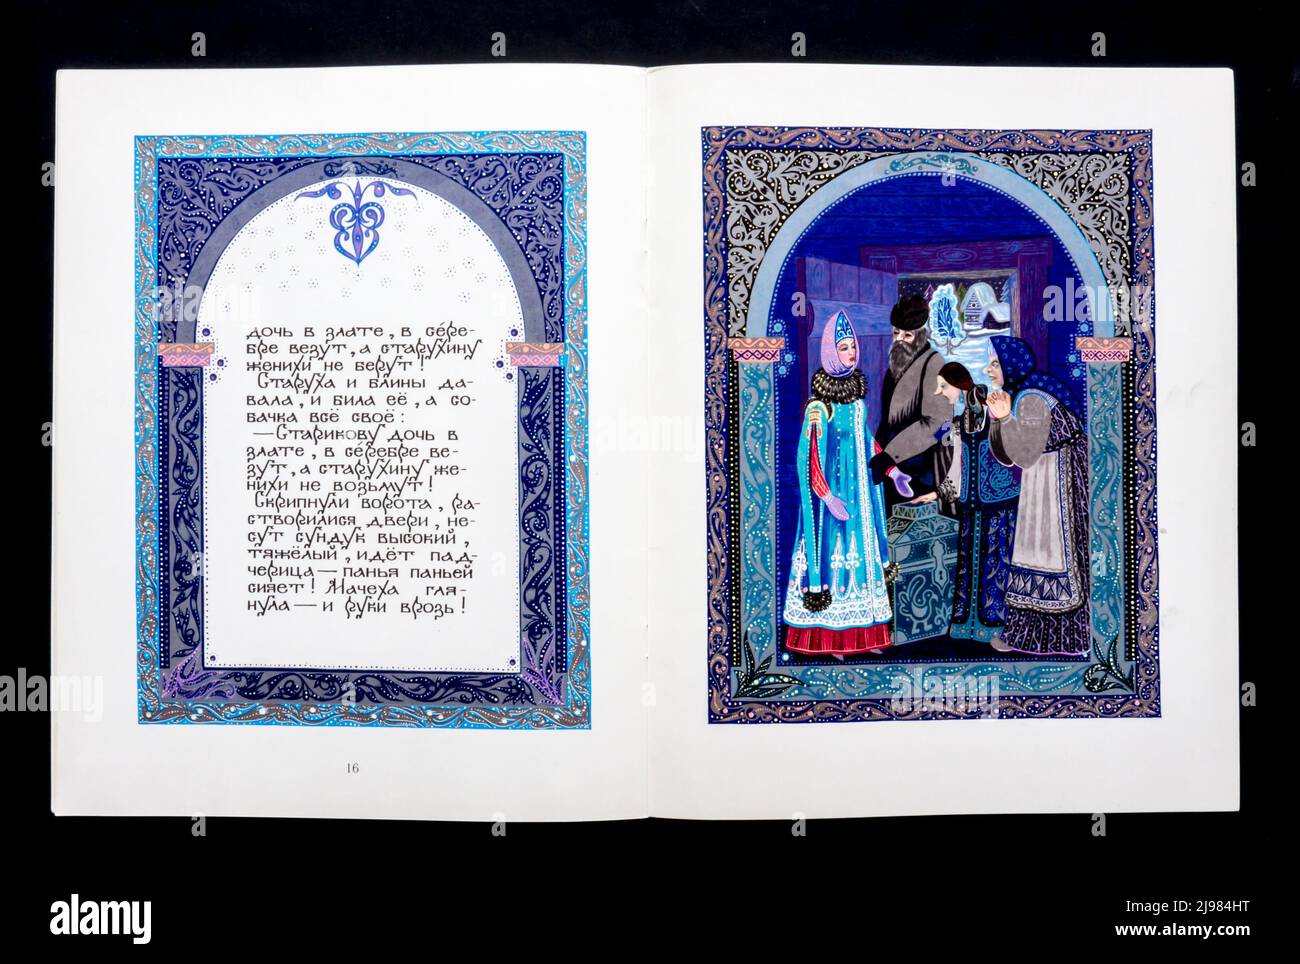 дочь в злате, в сере-
бре везут, а старухину
женихи не берут!
Старуха и блины да-
вала, и била её, а со-
бачка всё своё:
— Старикову дочь в
злате, в серебре ве-
зут, а старухину же-
нихи не возьмут!
Скрипнули ворота, ра-
створилися двери, не-
сут сундук высокий,
тяжёлый, идёт пад-
черица — панья паньей
сияет! Мачеха гля-
нула — и руки врозь!
16
alamy
alamy
Image ID: 2J984HT
www.alamy.com